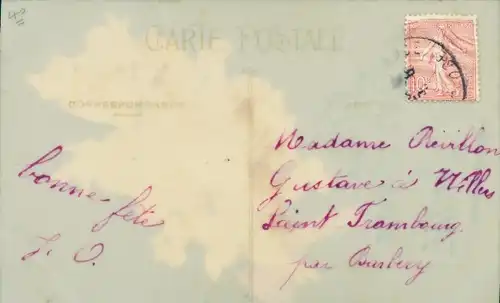 CARTE POSTALE
CORRESPONDANCE
bonne fête
J. O.
Madame Révillon
Gustave à Villers
Saint Frambourg
par Barbery